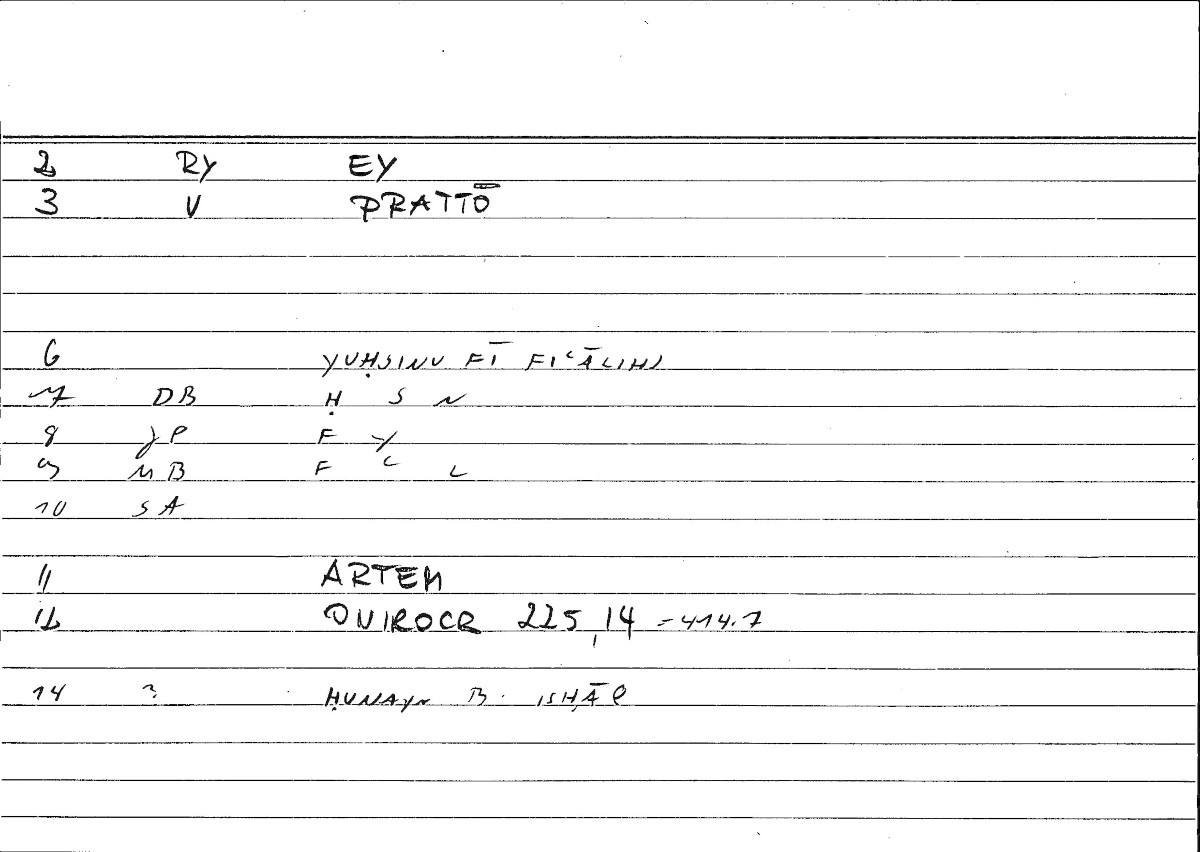 2 RY EY
3 V PRATTŌ
6 YUḤSINU FĪ FIʿĀLIHI
7 DB Ḥ S N
8 JP F Y
9 MB F ʿ L
10 SA
11 ARTEM
12 ONIROCR 225,14 = 414.7
14 ? ḤUNAYN B. ISḤĀQ